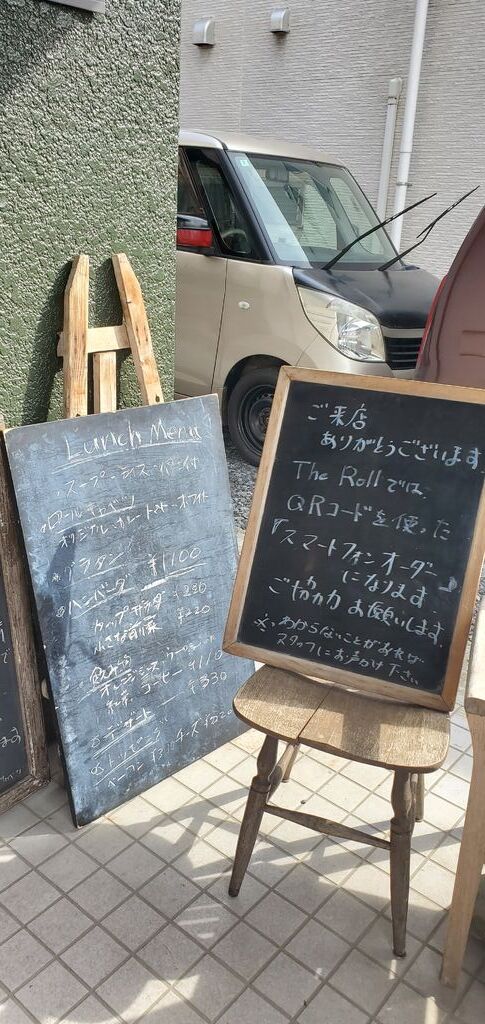 Lunch Menu
スープ・ライス・パン付
ロールキャベツ
オリジナル・トマト・ホワイト
グラタン
¥1100
ハンバーグ
カップサラダ
¥220
小さな前菜
オレンジジュース
紅茶 コーヒー ¥110
デザート ¥330
トッピング
ベーコン
チーズ ¥220
ご来店
ありがとうございます
The Rollでは、
QRコードを使った
「スマートフォンオーダー」
になります
ご協力お願いします。
※わからないことがあれば
スタッフにお声がけ下さい。